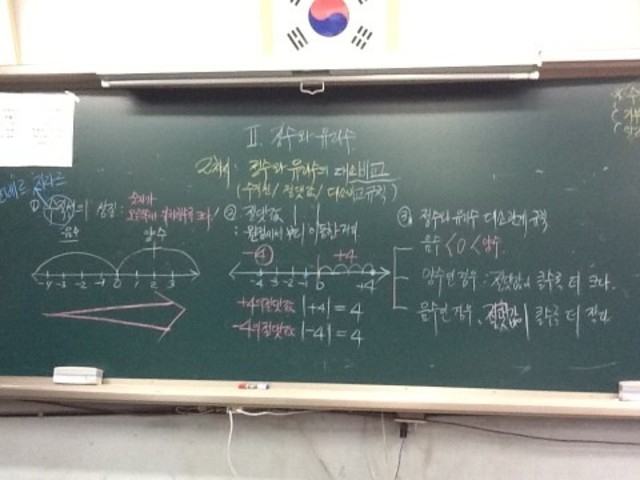 II. 정수와 유리수
2차시 : 정수와 유리수의 대소비교
(수직선 / 절댓값 / 대소비교규칙)
① 수직선의 성질 :
오른쪽에 위치할수록 크다!
음수 양수
-4 -3 -2 -1 0 1 2 3
② 절댓값 | |
: 원점에서부터 이동한 거리
-4 +4
-4 -3 -2 -1 0 +4
+4의 절댓값 |+4| = 4
-4의 절댓값 |-4| = 4
③ 정수와 유리수 대소관계 규칙
음수 < 0 < 양수
양수인 경우 : 절댓값이 클수록 더 크다.
음수인 경우, 절댓값이 클수록 더 작다.